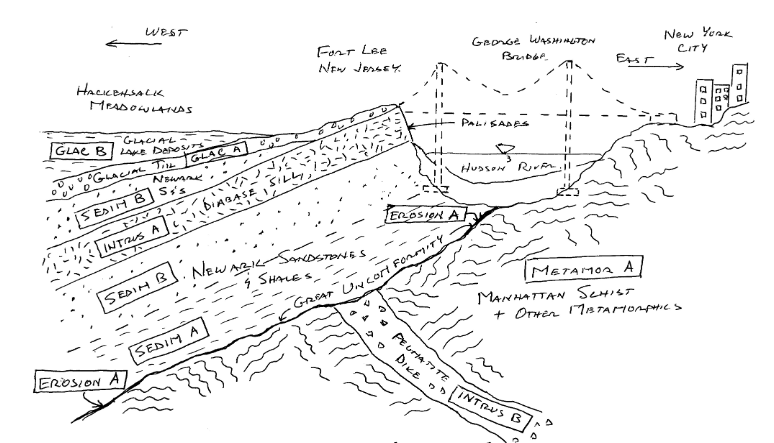 WEST
FORT LEE
NEW JERSEY.
GEORGE WASHINGTON
BRIDGE
EAST
NEW YORK
CITY
HACKENSACK
MEADOWLANDS
GLAC B
GLACIAL
LAKE DEPOSITS
GLACIAL TILL
GLAC A
PALISADES
HUDSON RIVER
NEWARK
SS'S
SEDIM B
INTRUS A
DIABASE SILL
EROSION A
SEDIM B
NEWARK SANDSTONES
& SHALES
GREAT UNCONFORMITY
METAMOR A
MANHATTAN SCHIST
+ OTHER METAMORPHICS
SEDIM A
EROSION A
PEGMATITE
DIKE
INTRUS B